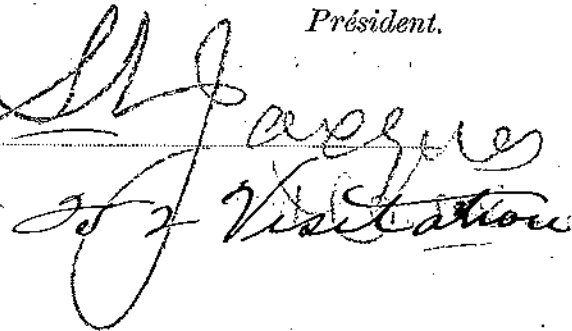 Président.
St Jacques
et Visitation